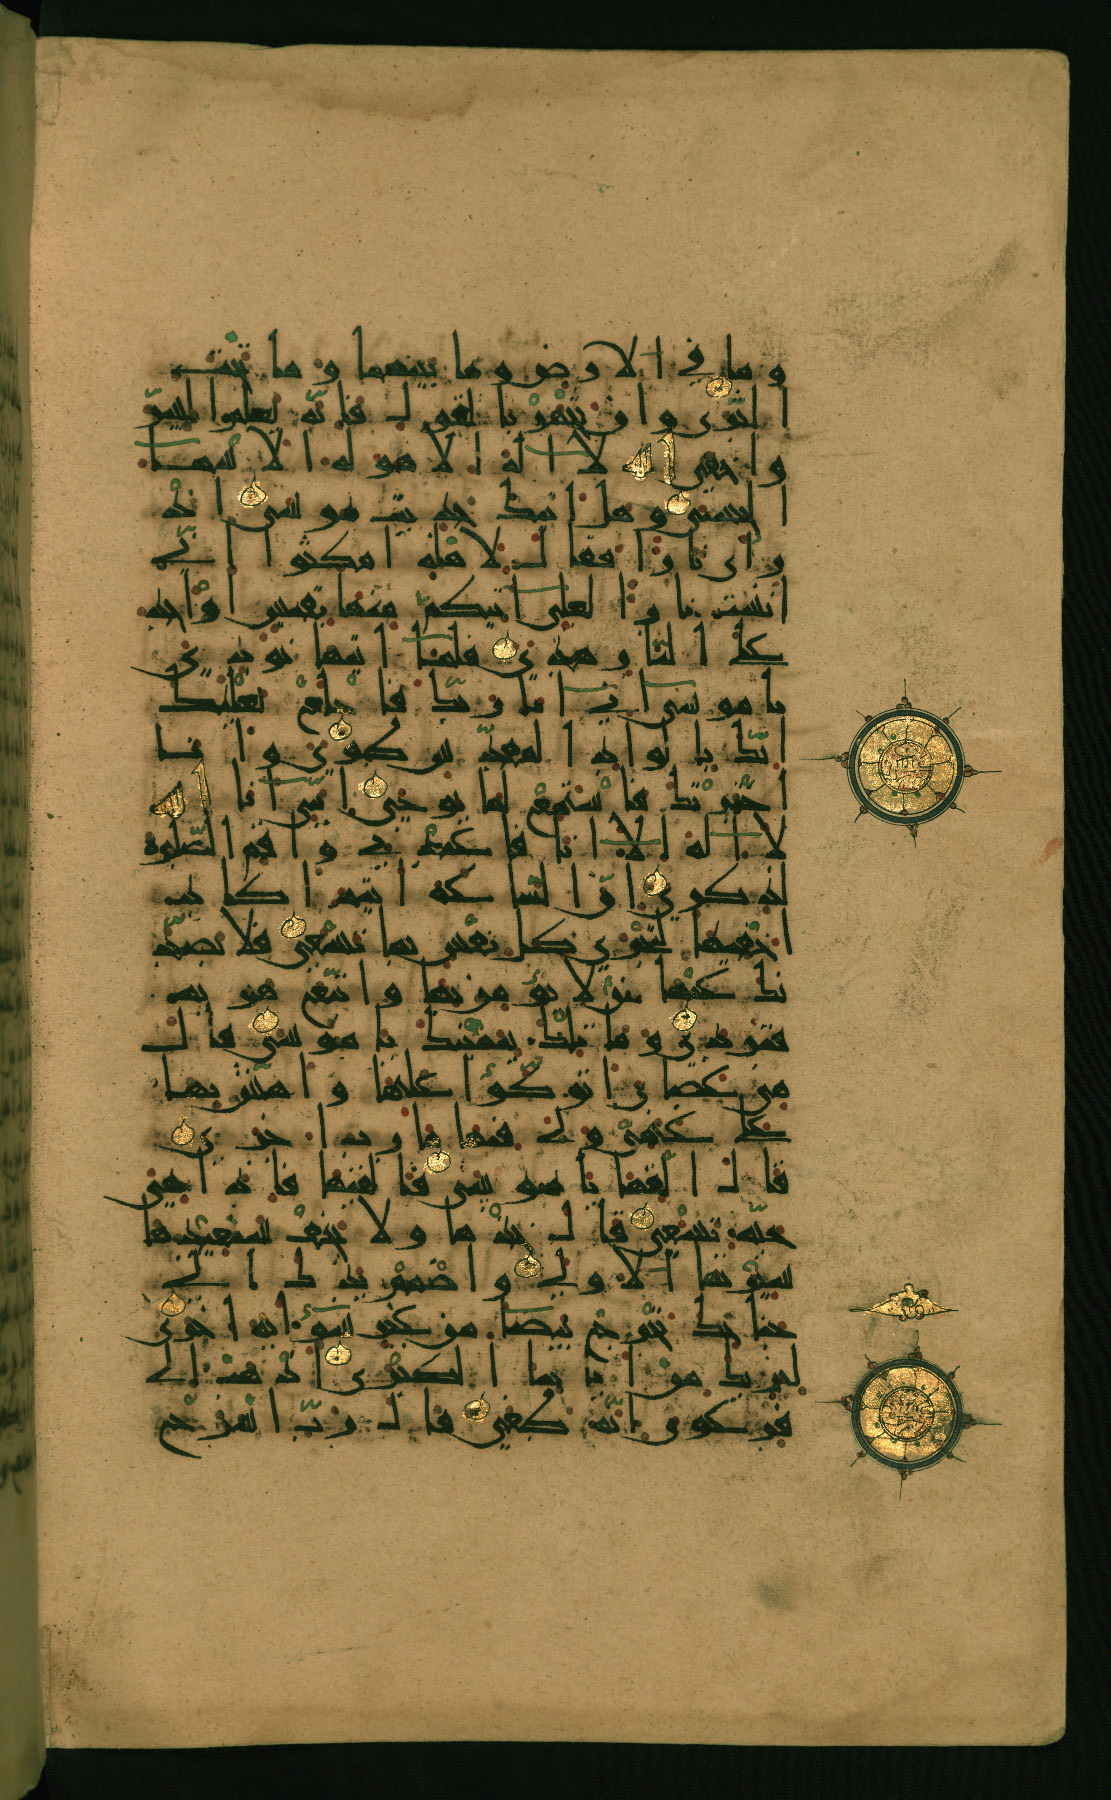 وما في الارض وما بينهما وما تحت
الثرى وان تجهر بالقول فانه يعلم السر
واخفى الله لا اله الا هو له الاسما
الحسنى وهل اتيك حديث موسى اذ
رای نارا فقال لاهله امكثوا اني
انست نارا لعلي اتيكم منها بقبس او اجد
على النار هدى فلما اتيها نودي
يا موسى اني انا ربك فاخلع نعليك
انك بالواد المقدس طوى وانا
اخترتك فاستمع لما يوحى انني انا الله
لا اله الا انا فاعبدني واقم الصلوة
لذكري ان الساعة اتية اكاد
اخفيها لتجزى كل نفس بما تسعى فلا يصد
نك عنها من لا يؤمن بها واتبع هويه
فتردى وما تلك بيمينك يا موسى قال
هي عصاي اتوكؤا عليها واهش بها
على غنمي ولي فيها مارب اخرى
قال القها يا موسى فالقيها فاذا هي
حية تسعى قال خذها ولا تخف سنعيدها
سيرتها الاولى واضمم يدك الى
جناحك تخرج بيضا من غير سوء اية اخرى
لنريك من اياتنا الكبرى اذهب الى
فرعون انه طغى قال رب اشرح